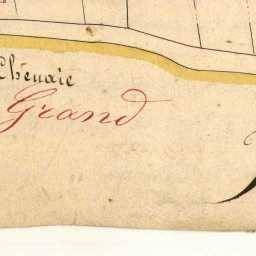 Chenaie
Grand